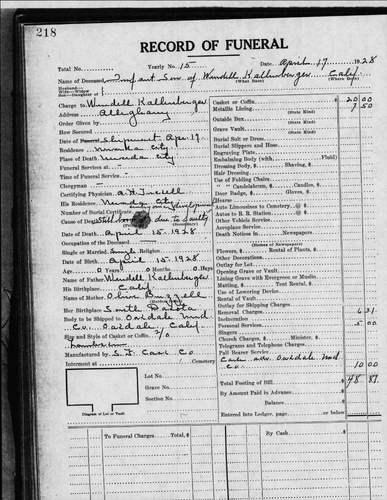 218
RECORD OF FUNERAL
Total No. Yearly No. 15 Date April 17 1928
Name of Deceased Infant Son of Wendell Kallenberger Calif
(What Race) (Where Born)
Husband—
Wife—Widow
Son—Daughter of
Charge to Wendell Kallenberger
Address Alleghany
Order Given by
How Secured
Date of Funeral Shipment Apr 17
Residence Nevada City
Place of Death Nevada City
Funeral Services at
Time of Funeral Service
Clergyman
Certifying Physician
His Residence Nevada City
Number of Burial Certificate
Cause of Death due to faulty
Date of Death April 15 1928
Occupation of the Deceased
Single or Married Single Religion
Date of Birth April 15 1928
Age 0 Years 0 Months 0 Days
Name of Father Wendell Kallenberger
His Birthplace Calif
Name of Mother Olive
Her Birthplace South Dakota
Body to be Shipped to Oakdale Mad.
Co. Oakdale Calif
Size and Style of Casket or Coffin 2/0
Manufactured by S. F. Cask Co
Interment at Cemetery
Lot No.
Grave No.
Section No.
Diagram of Lot or Vault
Casket or Coffin 20 00
Metallic Lining 7 50
(State Kind)
Outside Box
(State Kind)
Grave Vault
(State Kind)
Burial Suit or Dress
Burial Slippers and Hose
Engraving Plate
Embalming Body (with Fluid)
Dressing Body, $ Shaving, $
Hair Dressing
Use of Folding Chairs
" " Candelabrum, $ Candles, $
Door Badge, $ Gloves, $
Hearse
Auto Limousines to Cemetery @ $
Autos to R. R. Station @ $
Other Vehicle Service
Aeroplane Service
Death Notices in Newspapers
(Names of Newspapers)
Flowers, $ Rental of Plants, $
Other Decorations
Outlay for Lot
Opening Grave or Vault
Lining Grave with Evergreen or Muslin
Matting, $ Tent Rental, $
Use of Lowering Device
Rental of Vault
Outlay for Shipping Charges
Removal Charges 6 31
Incineration
Personal Services 5 00
Singers
Church Charges, $ Minister, $
Telegrams and Telephone Charges
Pall Bearer Service
Cash adv. Oakdale Mad.
Co. 10 00
Total Footing of Bill $ 48 81
By Amount Paid in Advance
Balance
Entered into Ledger, page or below
To Funeral Charges Total, $ By Cash $